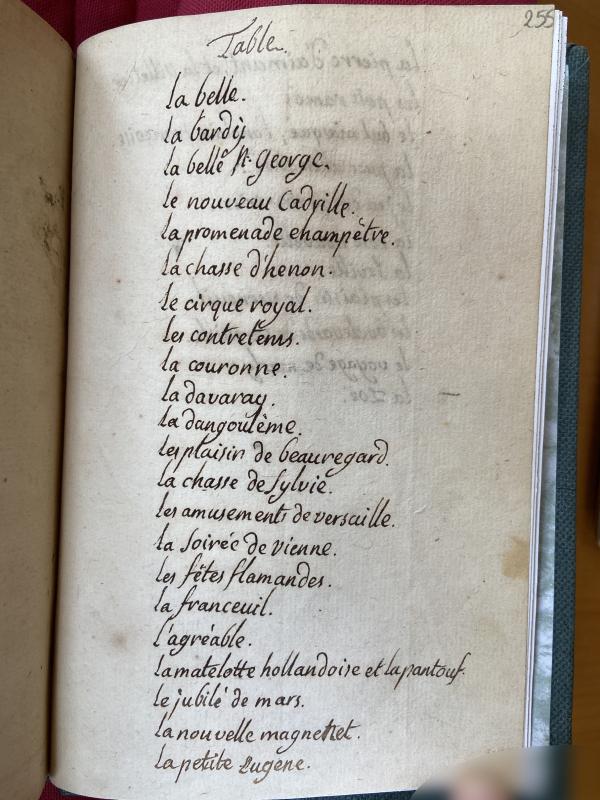 255
Table.
la belle.
la bardy.
la belle St. George.
le nouveau Cadrille.
la promenade champêtre.
la chasse d'henon.
le cirque royal.
les contretems.
la couronne.
la davaray.
la dangoulême.
les plaisirs de beauregard.
la chasse de Sylvie.
les amusements de versaille.
la Soirée de vienne.
les fêtes flamandes.
la franceuil.
l'agréable.
la matelotte hollandoise et la pantouf.
le jubilé de mars.
la nouvelle
la petite Eugène.